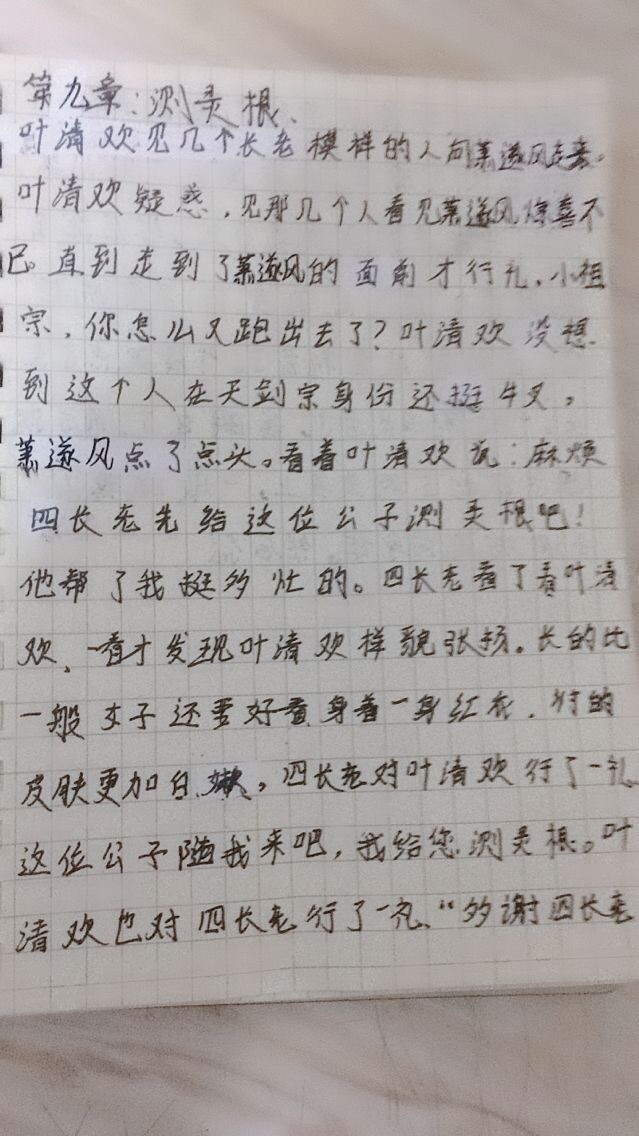 第九章:测灵根、
叶清欢见几个长老模样的人向萧遂风走来。
叶清欢疑惑,见那几个人看见萧遂风惊喜不
已直到走到了萧遂风的面前才行礼,小祖
宗,你怎么又跑出去了?叶清欢没想
到这个人在天剑宗身份还挺牛叉,
萧遂风点了点头。看着叶清欢说:麻烦
四长老先给这位公子测灵根吧!
他帮了我挺多忙的。四长老看了看叶清
欢、一看才发现叶清欢样貌张扬。长的比
一般女子还要好看身着一身红衣,衬的
皮肤更加白嫩,四长老对叶清欢行了一礼
这位公子随我来吧,我给您测灵根。叶
清欢也对四长老行了一礼、“多谢四长老